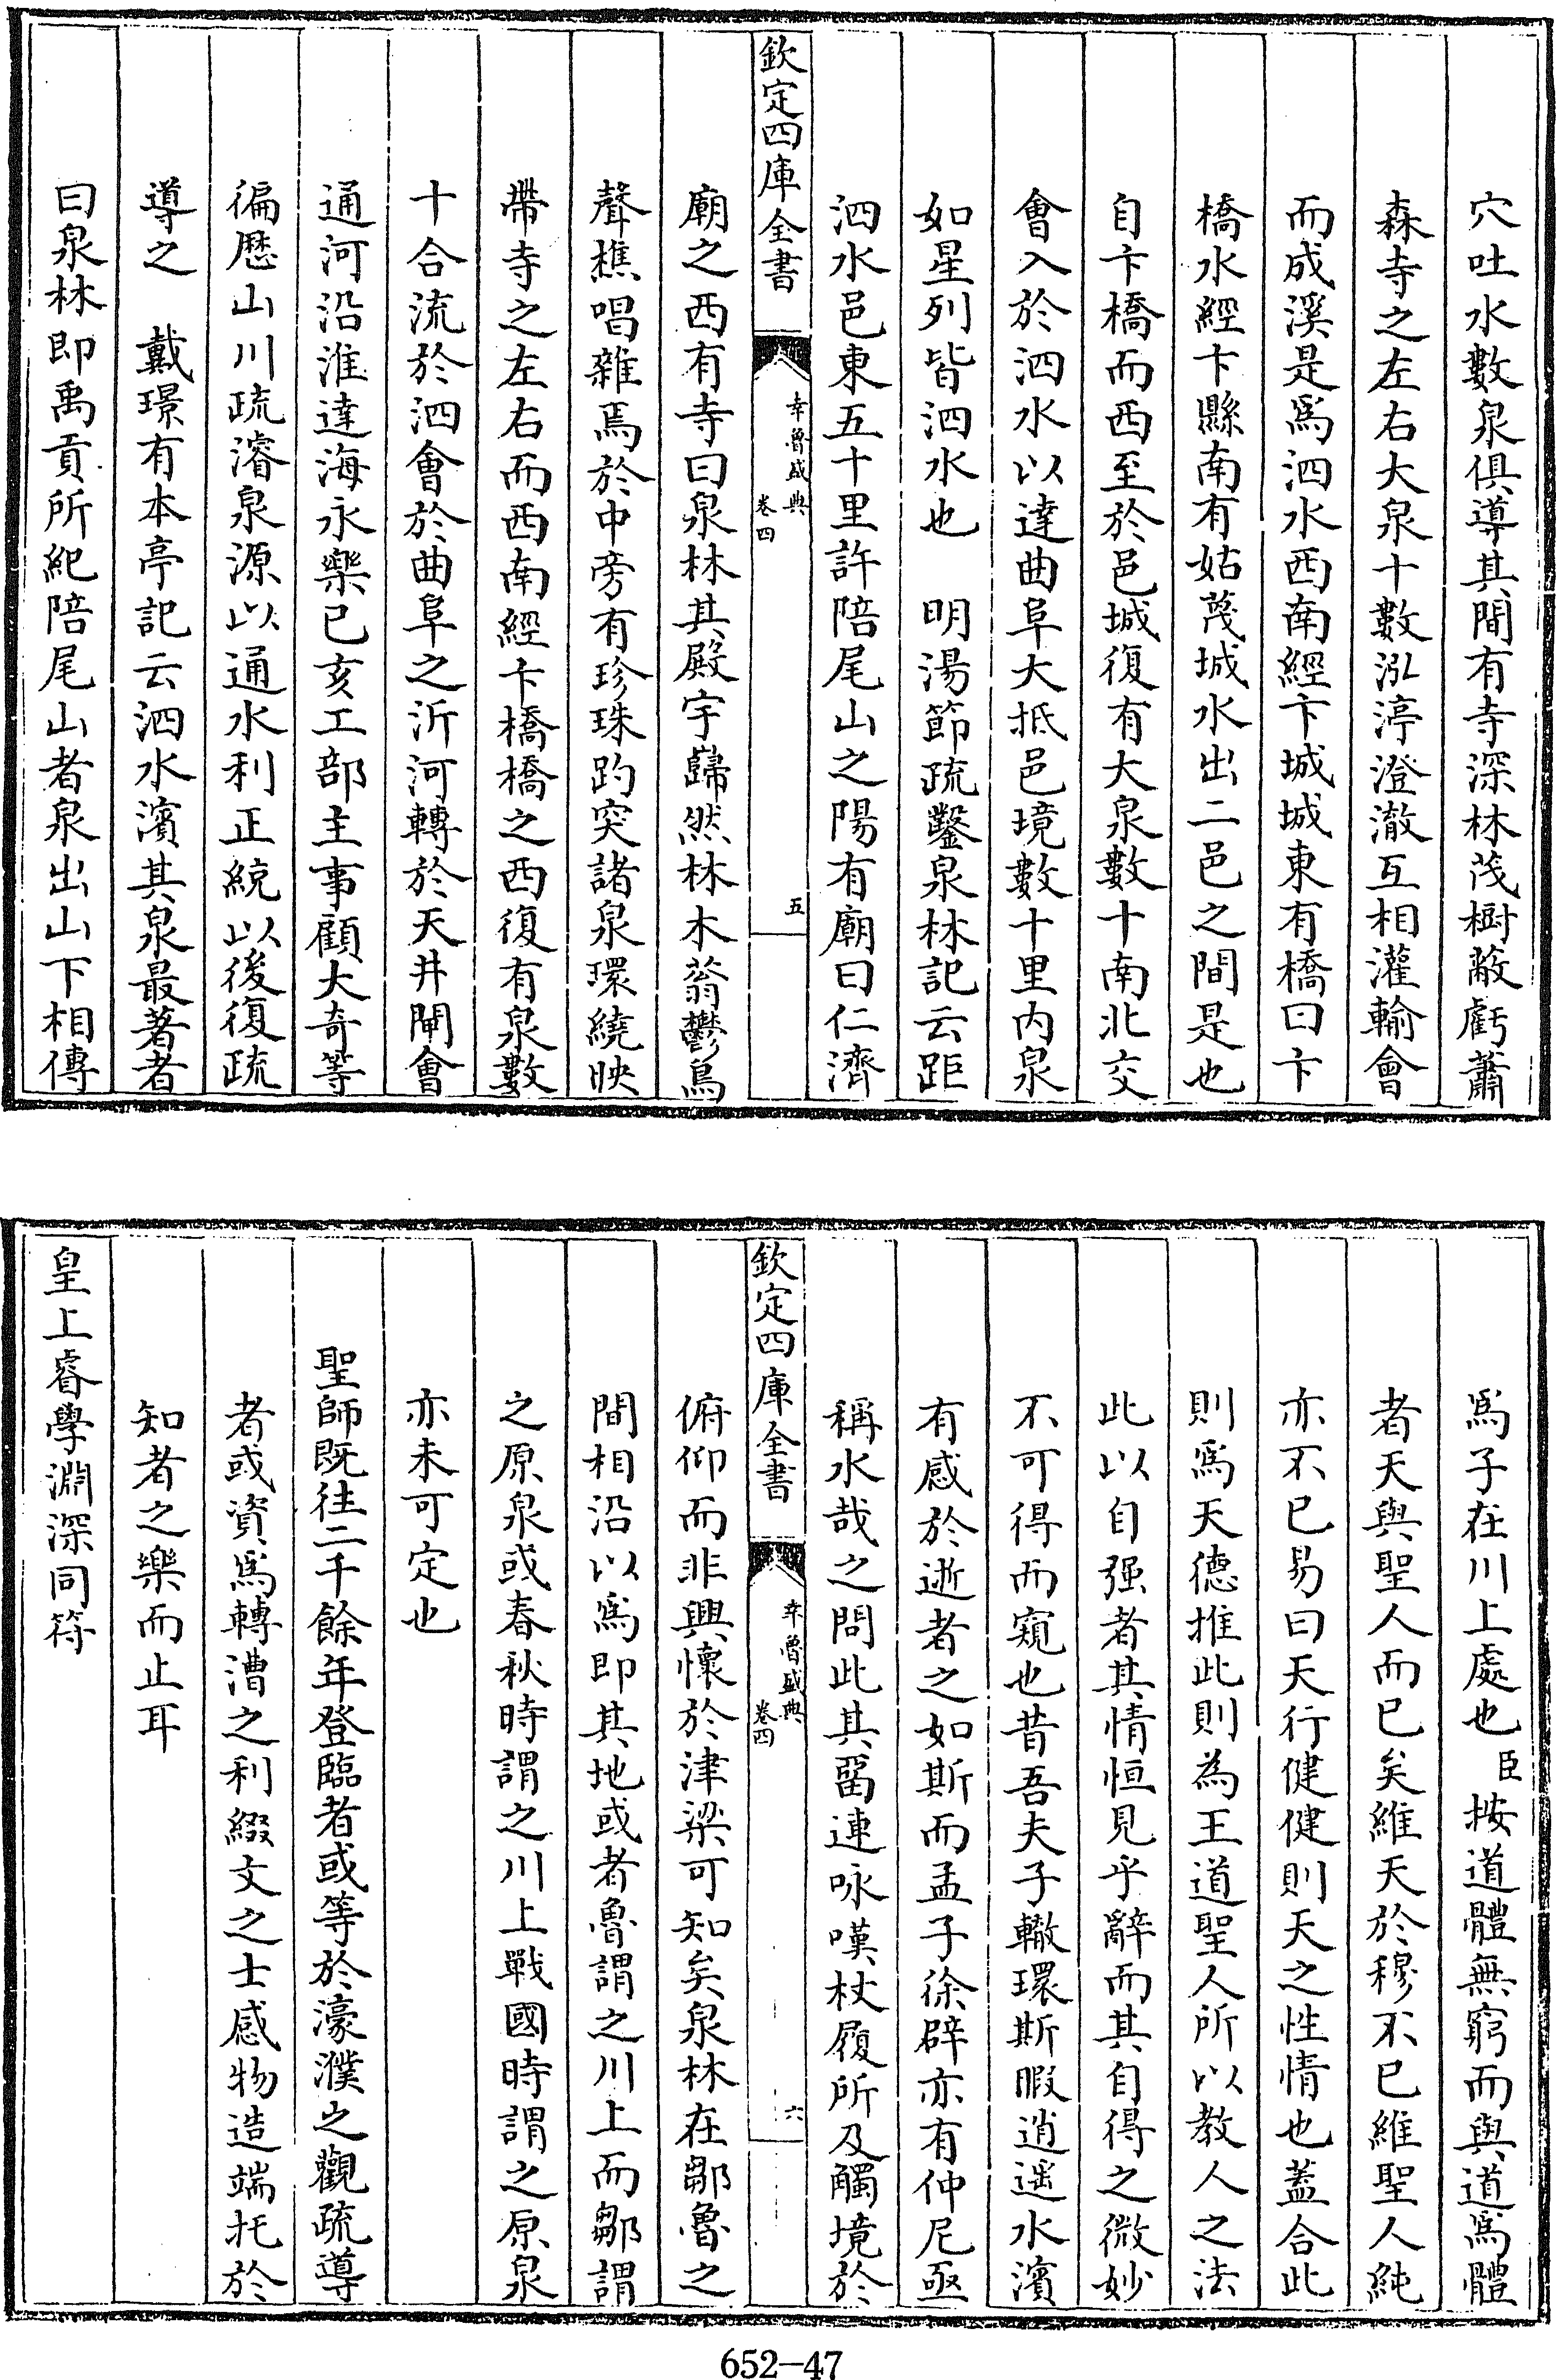 穴吐水數泉俱導其間有寺深林茂樹蔽虧蕭
森寺之左右大泉十數泓渟澄澈互相灌輸會
而成溪是爲泗水西南經卞城城東有橋曰卞
橋水經卞縣南有姑蔑城水出二邑之間是也
自卞橋而西至於邑城復有大泉數十南北交
會入於泗水以達曲阜大抵邑境數十里内泉
如星列皆泗水也　明湯節疏鑿泉林記云距
泗水邑東五十里許陪尾山之陽有廟曰仁濟
欽定四庫全書
幸魯盛典
卷四
五
廟之西有寺曰泉林其殿宇巋然林木蓊鬱鳥
聲樵唱雜焉於中旁有珍珠趵突諸泉環繞映
帶寺之左右而西南經卞橋橋之西復有泉數
十合流於泗會於曲阜之沂河轉於天井閘會
通河沿淮達海永樂已亥工部主事顧大奇等
徧歷山川疏濬泉源以通水利正統以後復疏
導之　戴璟有本亭記云泗水濱其泉最著者
曰泉林即禹貢所紀陪尾山者泉出山下相傳
爲子在川上處也臣按道體無窮而與道爲體
者天與聖人而已矣維天於穆不已維聖人純
亦不已易曰天行健健則天之性情也蓋合此
則爲天德推此則為王道聖人所以教人之法
此以自强者其情恒見乎辭而其自得之微妙
不可得而窺也昔吾夫子轍環斯暇逍遥水濱
有感於逝者之如斯而孟子徐辟亦有仲尼亟
稱水哉之問此其畱連咏嘆杖履所及觸境於
欽定四庫全書
幸魯盛典
卷四
六
俯仰而非興懷於津梁可知矣泉林在鄒魯之
間相沿以爲即其地或者魯謂之川上而鄒謂
之原泉或春秋時謂之川上戰國時謂之原泉
亦未可定也
聖師既往二千餘年登臨者或等於濠濮之觀疏導
者或資爲轉漕之利綴文之士感物造端托於
知者之樂而止耳
皇上睿學淵深同符
652-47